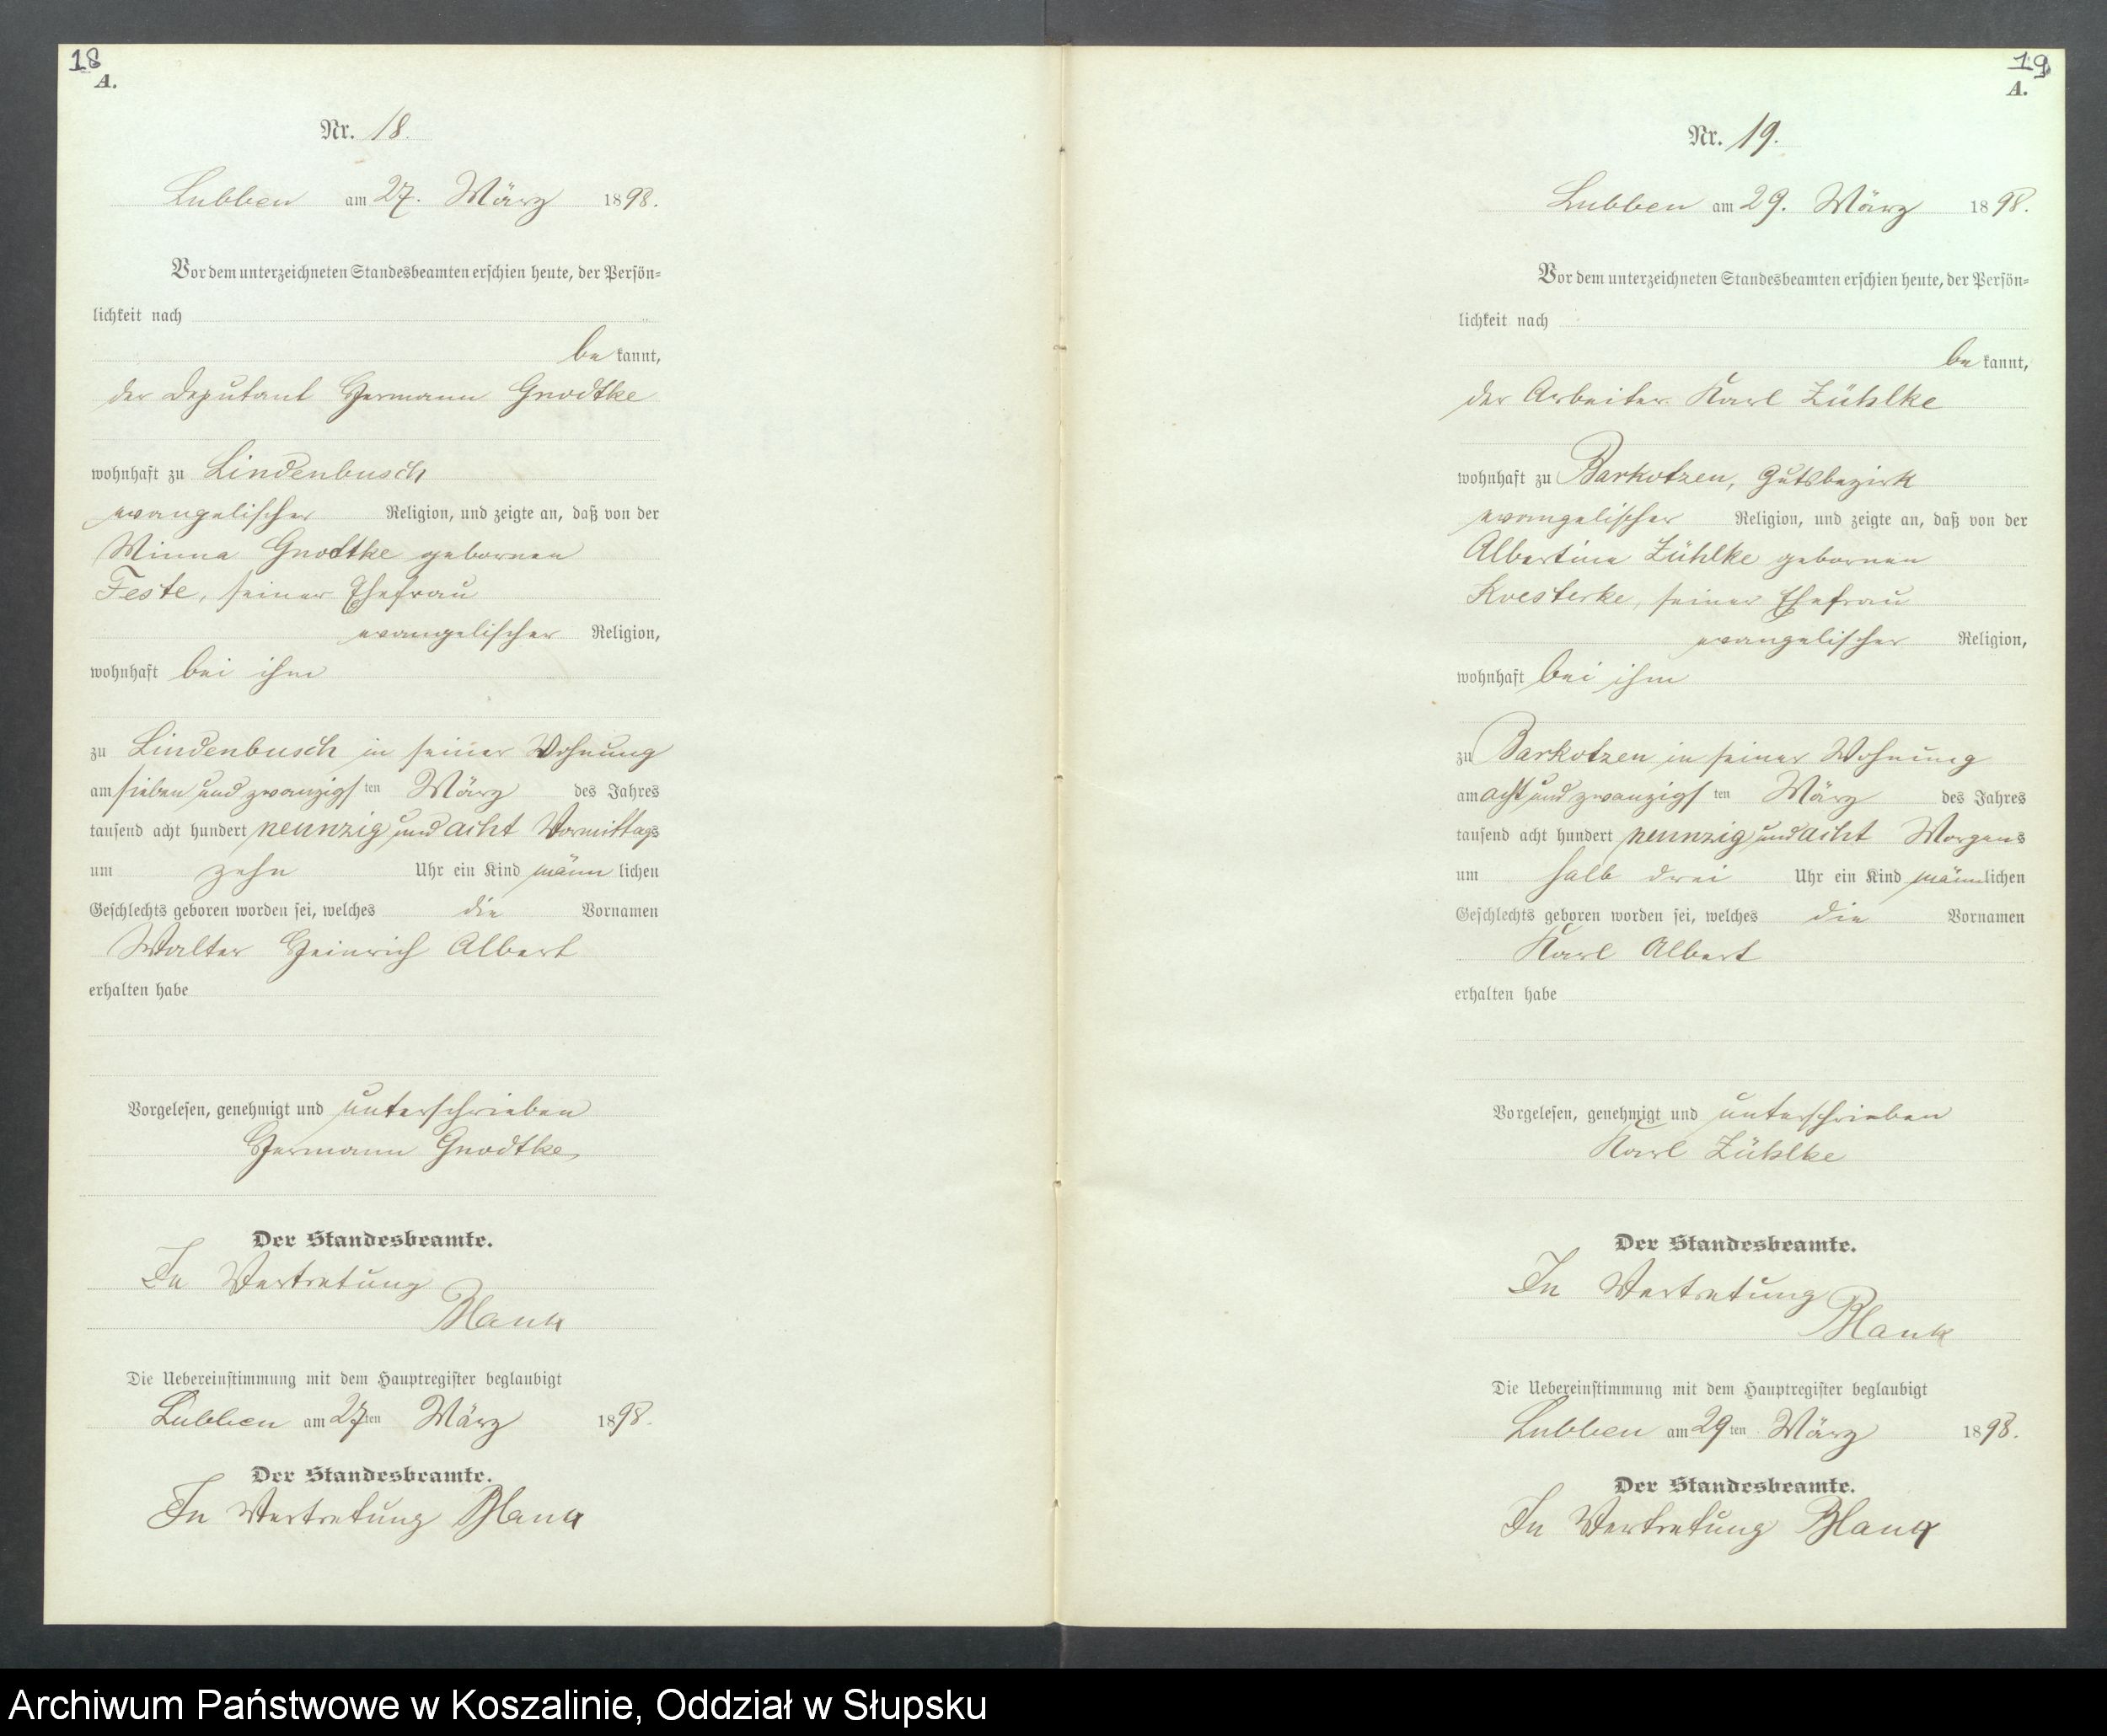 18
A.
Nr. 18.
Lubben am 27. März 1898.
Vor dem unterzeichneten Standesbeamten erschien heute, der Persön=
lichkeit nach
be kannt,
der Deputant Hermann Gnodtke
wohnhaft zu Lindenbusch
evangelischer Religion, und zeigte an, daß von der
Minna Gnodtke geborenen
Feste, seiner Ehefrau
evangelischer Religion,
wohnhaft bei ihm
zu Lindenbusch in seiner Wohnung
am sieben und zwanzigs ten März des Jahres
tausend acht hundert neunzig und acht Vormittags
um zehn Uhr ein Kind männ lichen
Geschlechts geboren worden sei, welches die Vornamen
Walter Heinrich Albert
erhalten habe
Vorgelesen, genehmigt und unterschrieben
Hermann Gnodtke
Der Standesbeamte.
In Vertretung
Blank
Die Uebereinstimmung mit dem Hauptregister beglaubigt
Lubben am 27ten März 1898.
Der Standesbeamte.
In Vertretung Blank
19
A.
Nr. 19.
Lubben am 29. März 1898.
Vor dem unterzeichneten Standesbeamten erschien heute, der Persön=
lichkeit nach
be kannt,
der Arbeiter Karl Zühlke
wohnhaft zu Barkotzen, Gutsbezirk
evangelischer Religion, und zeigte an, daß von der
Albertine Zühlke geborenen
Koesterke, seiner Ehefrau
evangelischer Religion,
wohnhaft bei ihm
zu Barkotzen in seiner Wohnung
am acht und zwanzigs ten März des Jahres
tausend acht hundert neunzig und acht Morgens
um halb drei Uhr ein Kind männlichen
Geschlechts geboren worden sei, welches die Vornamen
Karl Albert
erhalten habe
Vorgelesen, genehmigt und unterschrieben
Karl Zühlke
Der Standesbeamte.
In Vertretung
Blank
Die Uebereinstimmung mit dem Hauptregister beglaubigt
Lubben am 29ten März 1898.
Der Standesbeamte.
In Vertretung Blank
Archiwum Państwowe w Koszalinie, Oddział w Słupsku